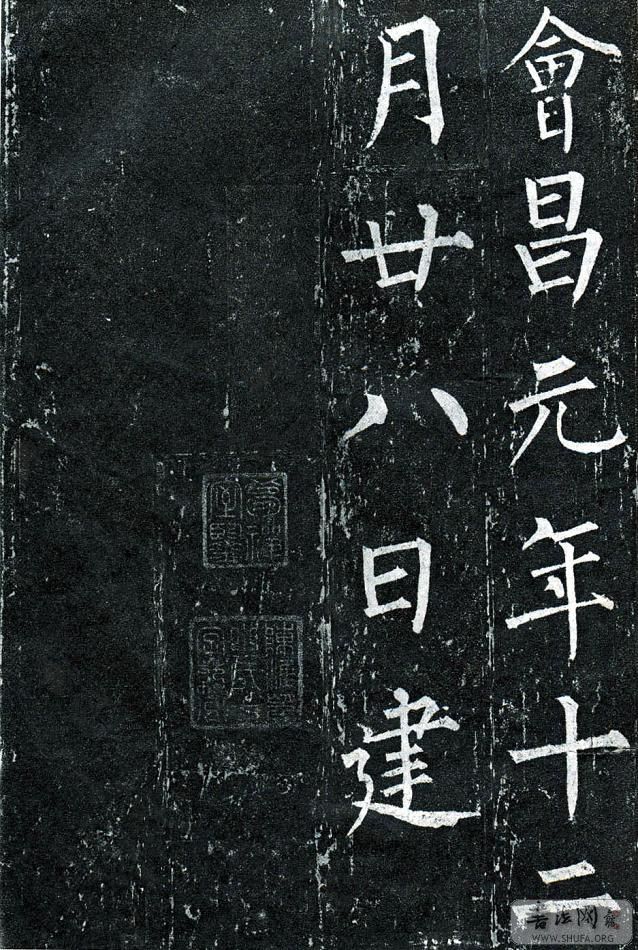 會昌元年十二
月廿八日建
書法网
WWW.SHUFA.ORG